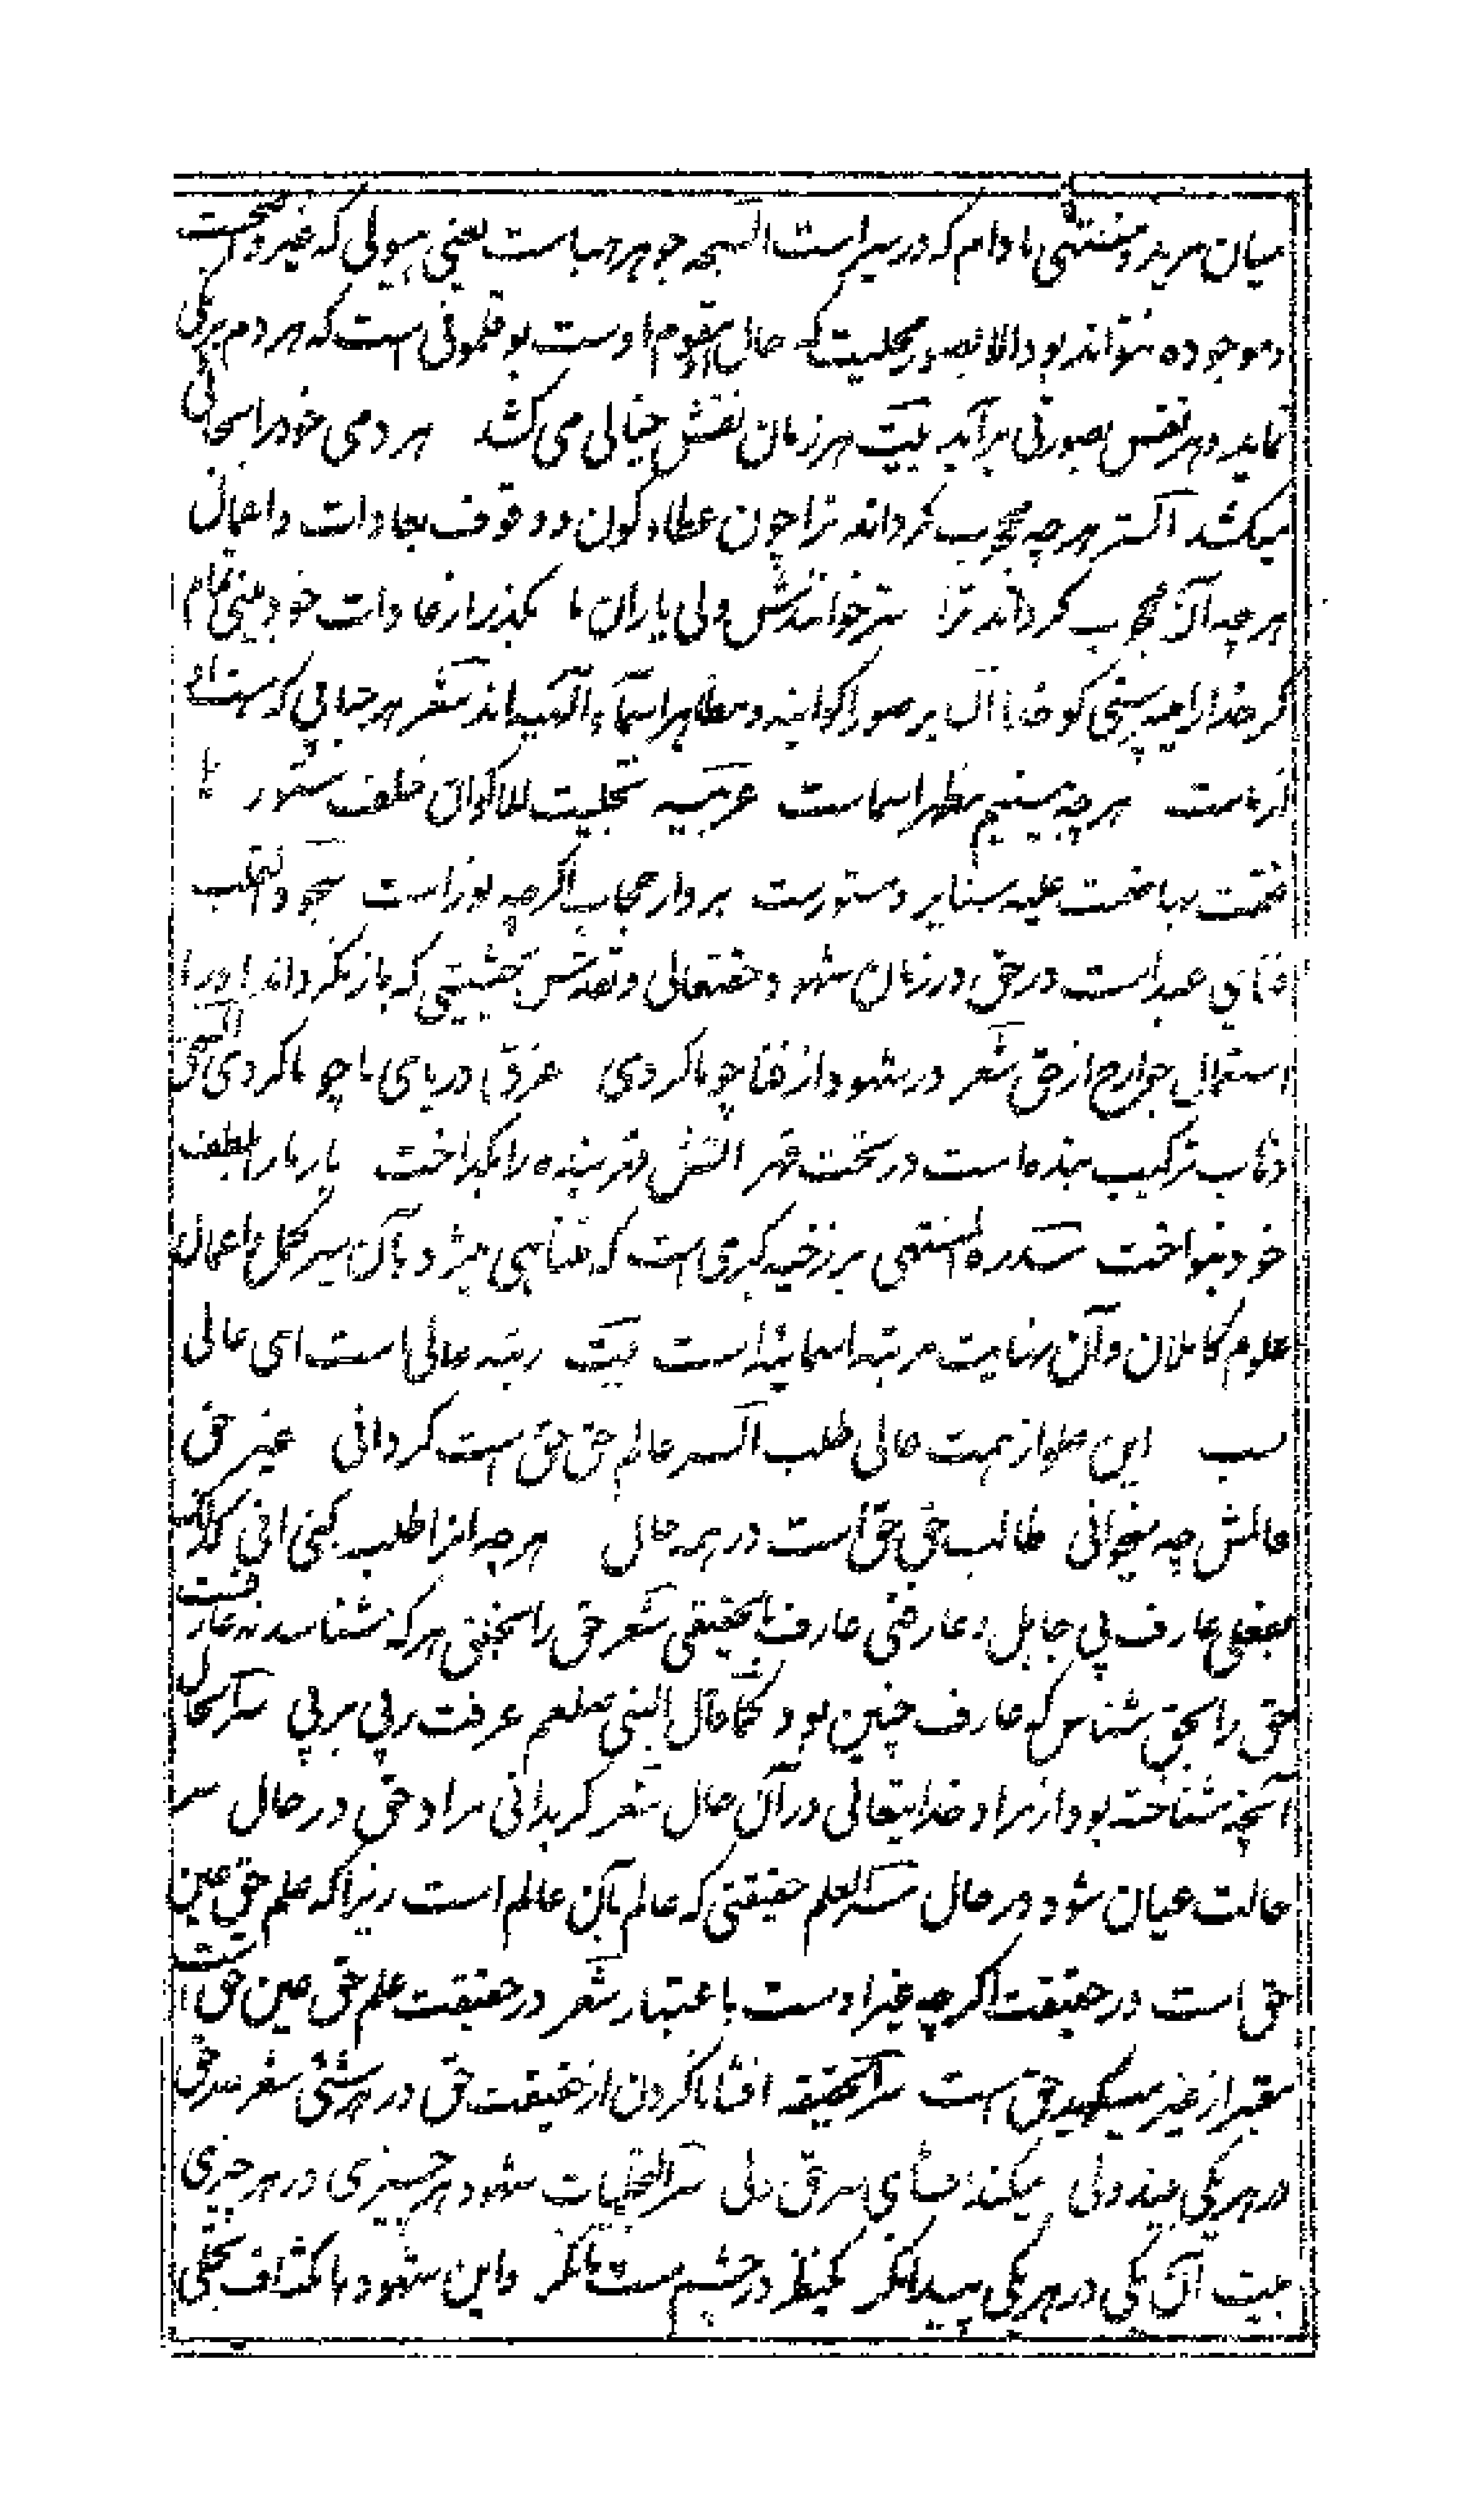 میان مرید و منتهی مادام که در سیر است السبحه جوهر هباست یعنی هیولی که غیر واضحست
و موجوده نتواند بود الا بصور تجلیت که حال مقوم اوست بوقلمونی است که هر دم برنگی
نماید و هر نفس بصورتی برآید بیت هر زمان نقش خیالی می کشد هر دمی خود را بحالی
میکشد الستر هرچه محجوب گرداند ترا چون عطاء کون و وقوف بعادات و اعمال
هرچه آن محجوب گرداند ترا ستر خوانندش ولی یاران ما بگذر از عادات خود بینی تمام
گر خدا را میپرستی کو خدا آل بر صور اکوانیه و مظاهر اسماء الهیه اند شعر هر حجابی که
از ماست هرچه بینیم مظهر اسماست عربیه تجلیت للاکوان خلف ستور
فنمت بما ضمت علیه ستایر و مستورست بردار حجاب اگرچه نور است سجود القلب
فنای عبد است در حق در زمان شهود حقتعالی و تقدس بحیثیتی که باز نگرداند او را
استعمال جوارح از حق شعر در شهود از فنا چو ما کردی غرق دریای ما چو ما کردی السحق
ذهاب ترکیب بنده است در تحت قهر آتش قهر بنده را بگداخت باز ما را بلطف
خود بنواخت سدره المنتهی برزخیه کبری است که متناهی میشود بآن سیر کمل و اعمال
علوم کاملان و آن نهایت مرتبه اسمائیه است بیت رتبه عالی است ای عالی
سب این علو از همت عالی طلب السر عالم حق حق است گر دانی غیر حق
عالمش چه میخوانی طالب حق حق است در همه حال هرچه او را طلب کنی آنی
بعضی عارف بی جاهل و عارضی عارف بالحقیقی شعر حق را بخلق هر که شناسد نه عارفست
حق را بحق شناس که عارف چنین بود کما قال النبی صلعم عرفت ربی بربی سر الحال
آنچه شناخته بود از مراد خدایتعالی در آن حال شعر گر بدانی مراد حق در حال سر
حالت عیان شود در حال سر العلم حقیقتی که عالم بآن عالم است زیرا که علم حق عین
حق است در حقیقت اگرچه غیر اوست باعتبار شعر در حقیقت علم حق عین حق است
معتبر از غیر حق است سر الحقیقه افشا ناکردن از حقیقت حق در هر شئی شعر سر حق
در هر یکی بیند ولی میکند افشای سر حق ولی سر التجلیات شهود هر چیزی در هر چیزی
بیت آن یکی در هر یکی پیدا نگر یکنظر در چشم مست ما نگر و این شهود بانکشاف تجلی